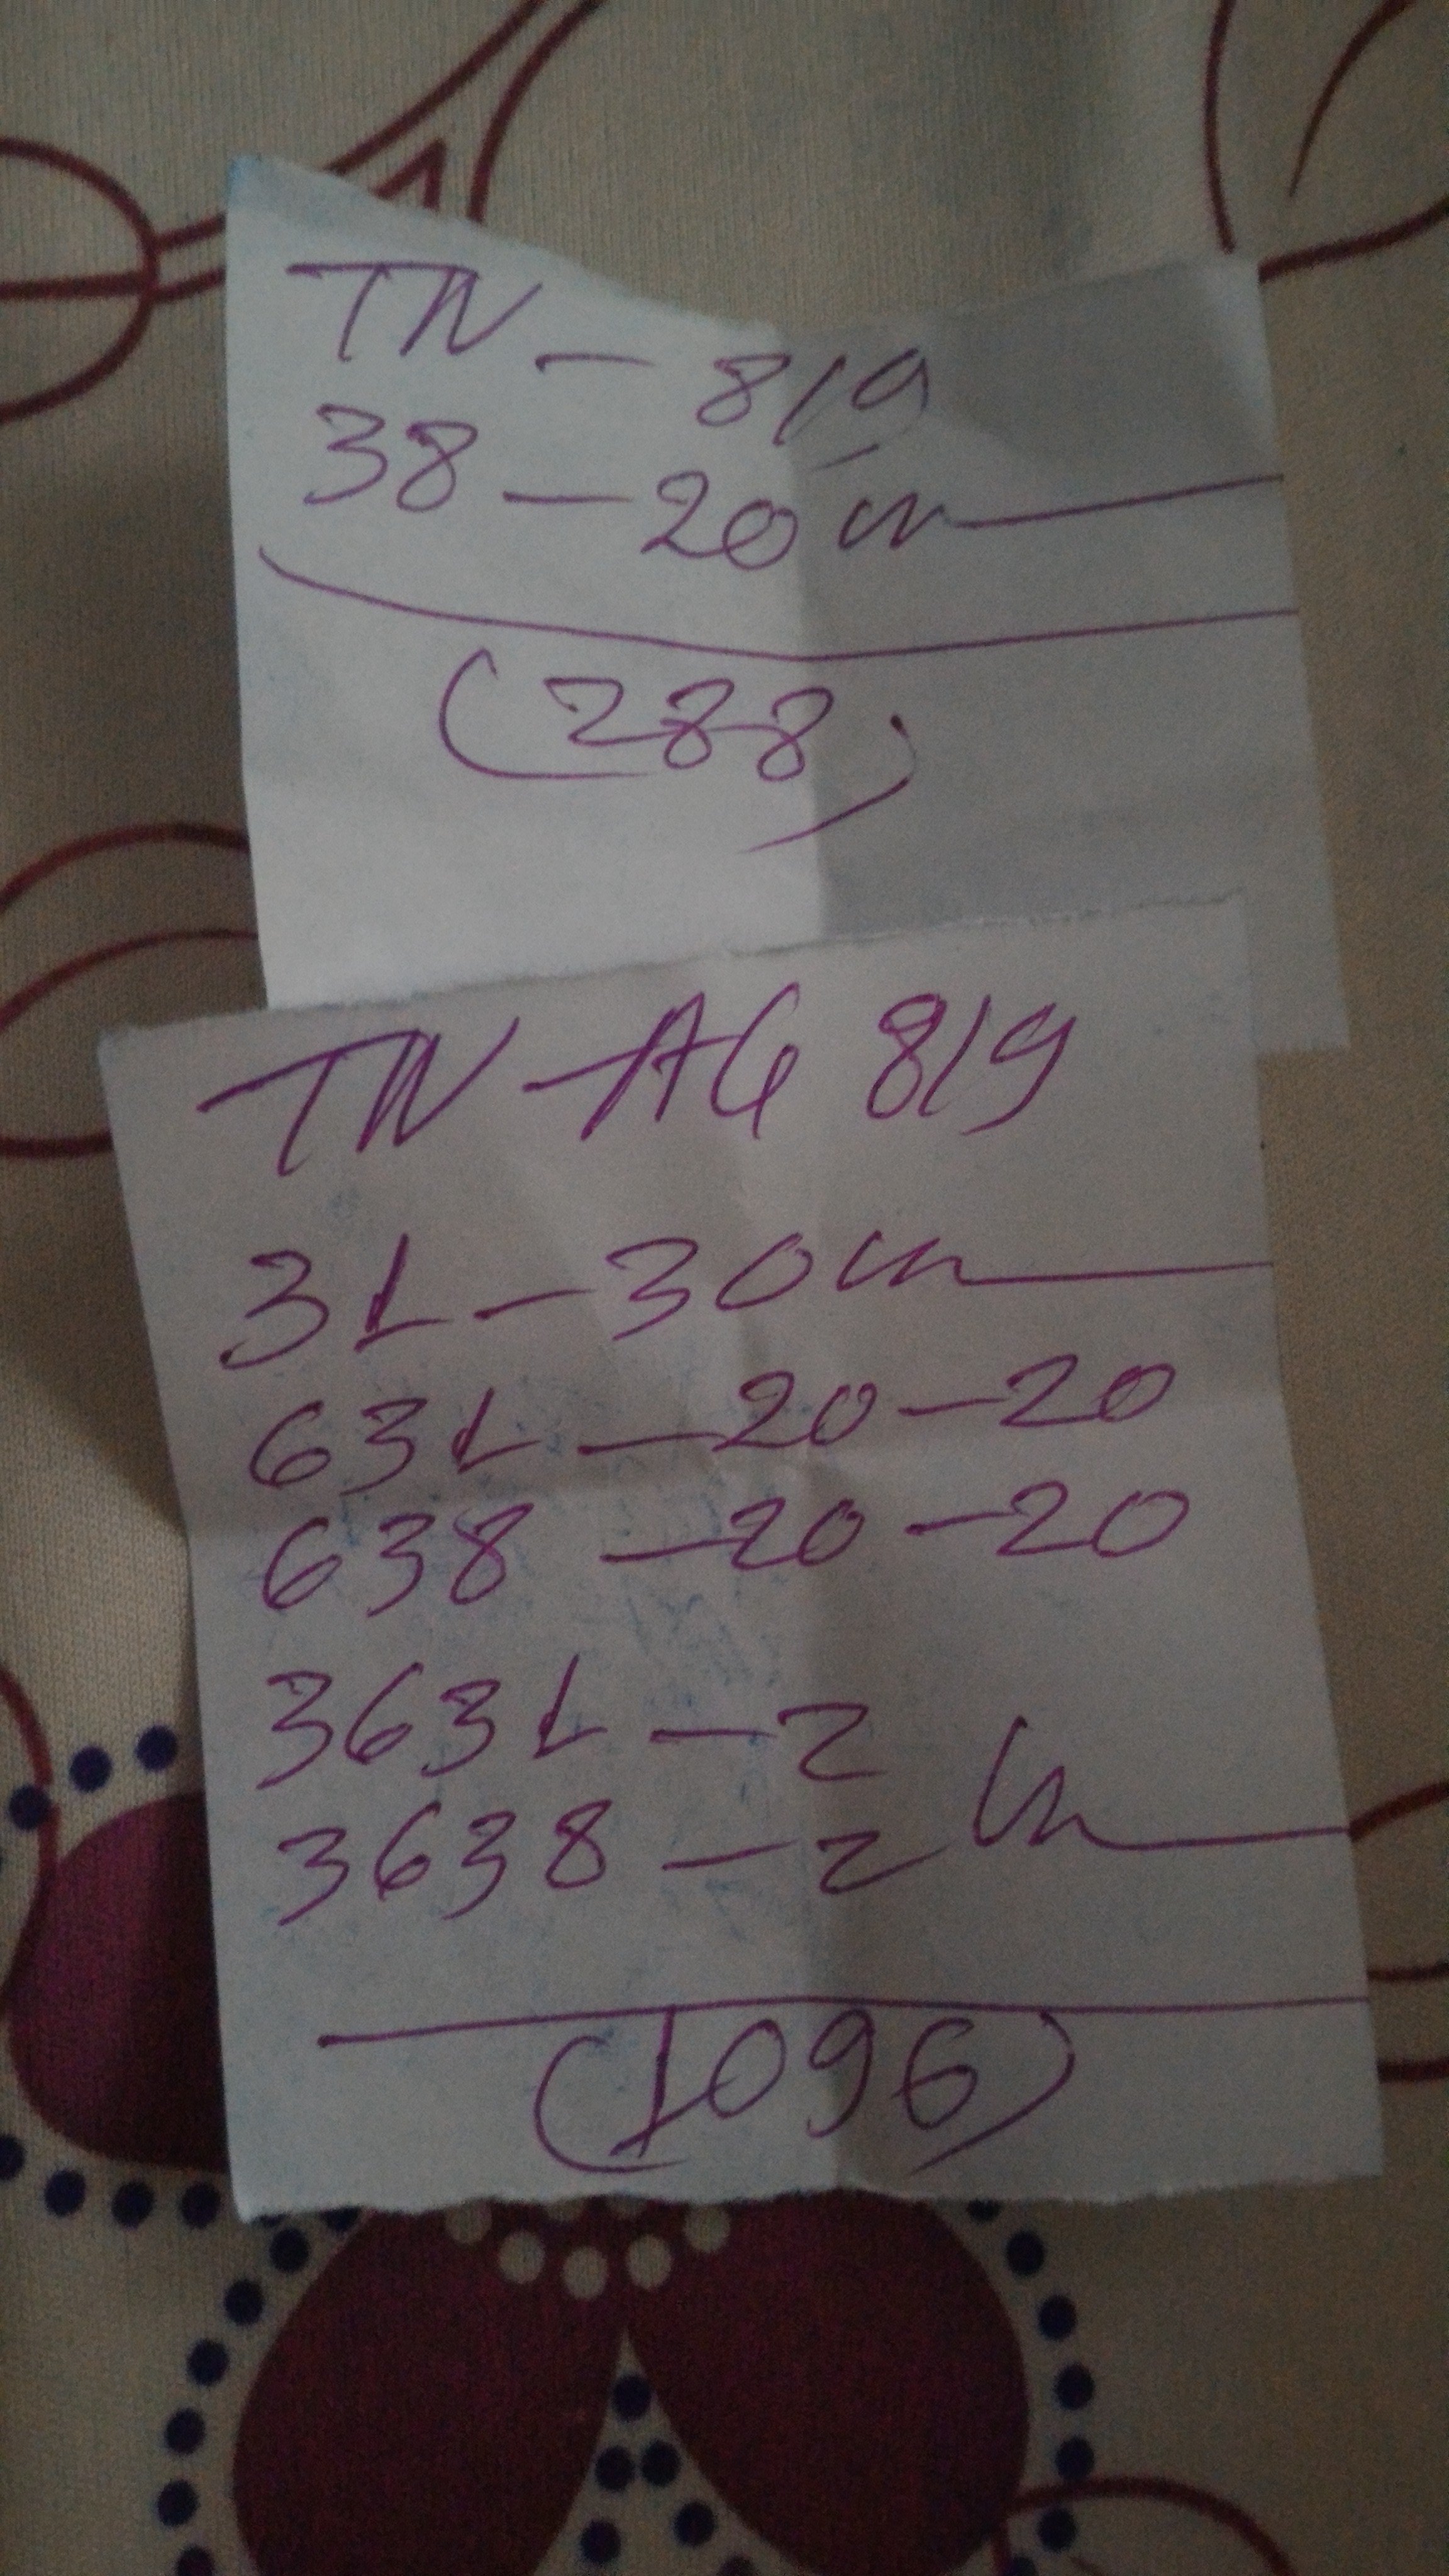 TN - 8/9
38 - 20
(288)
TN - AG 8/9
31 - 30
631 - 20 - 20
638 - 20 - 20
3631 - 2
3638 - 2
(1096)